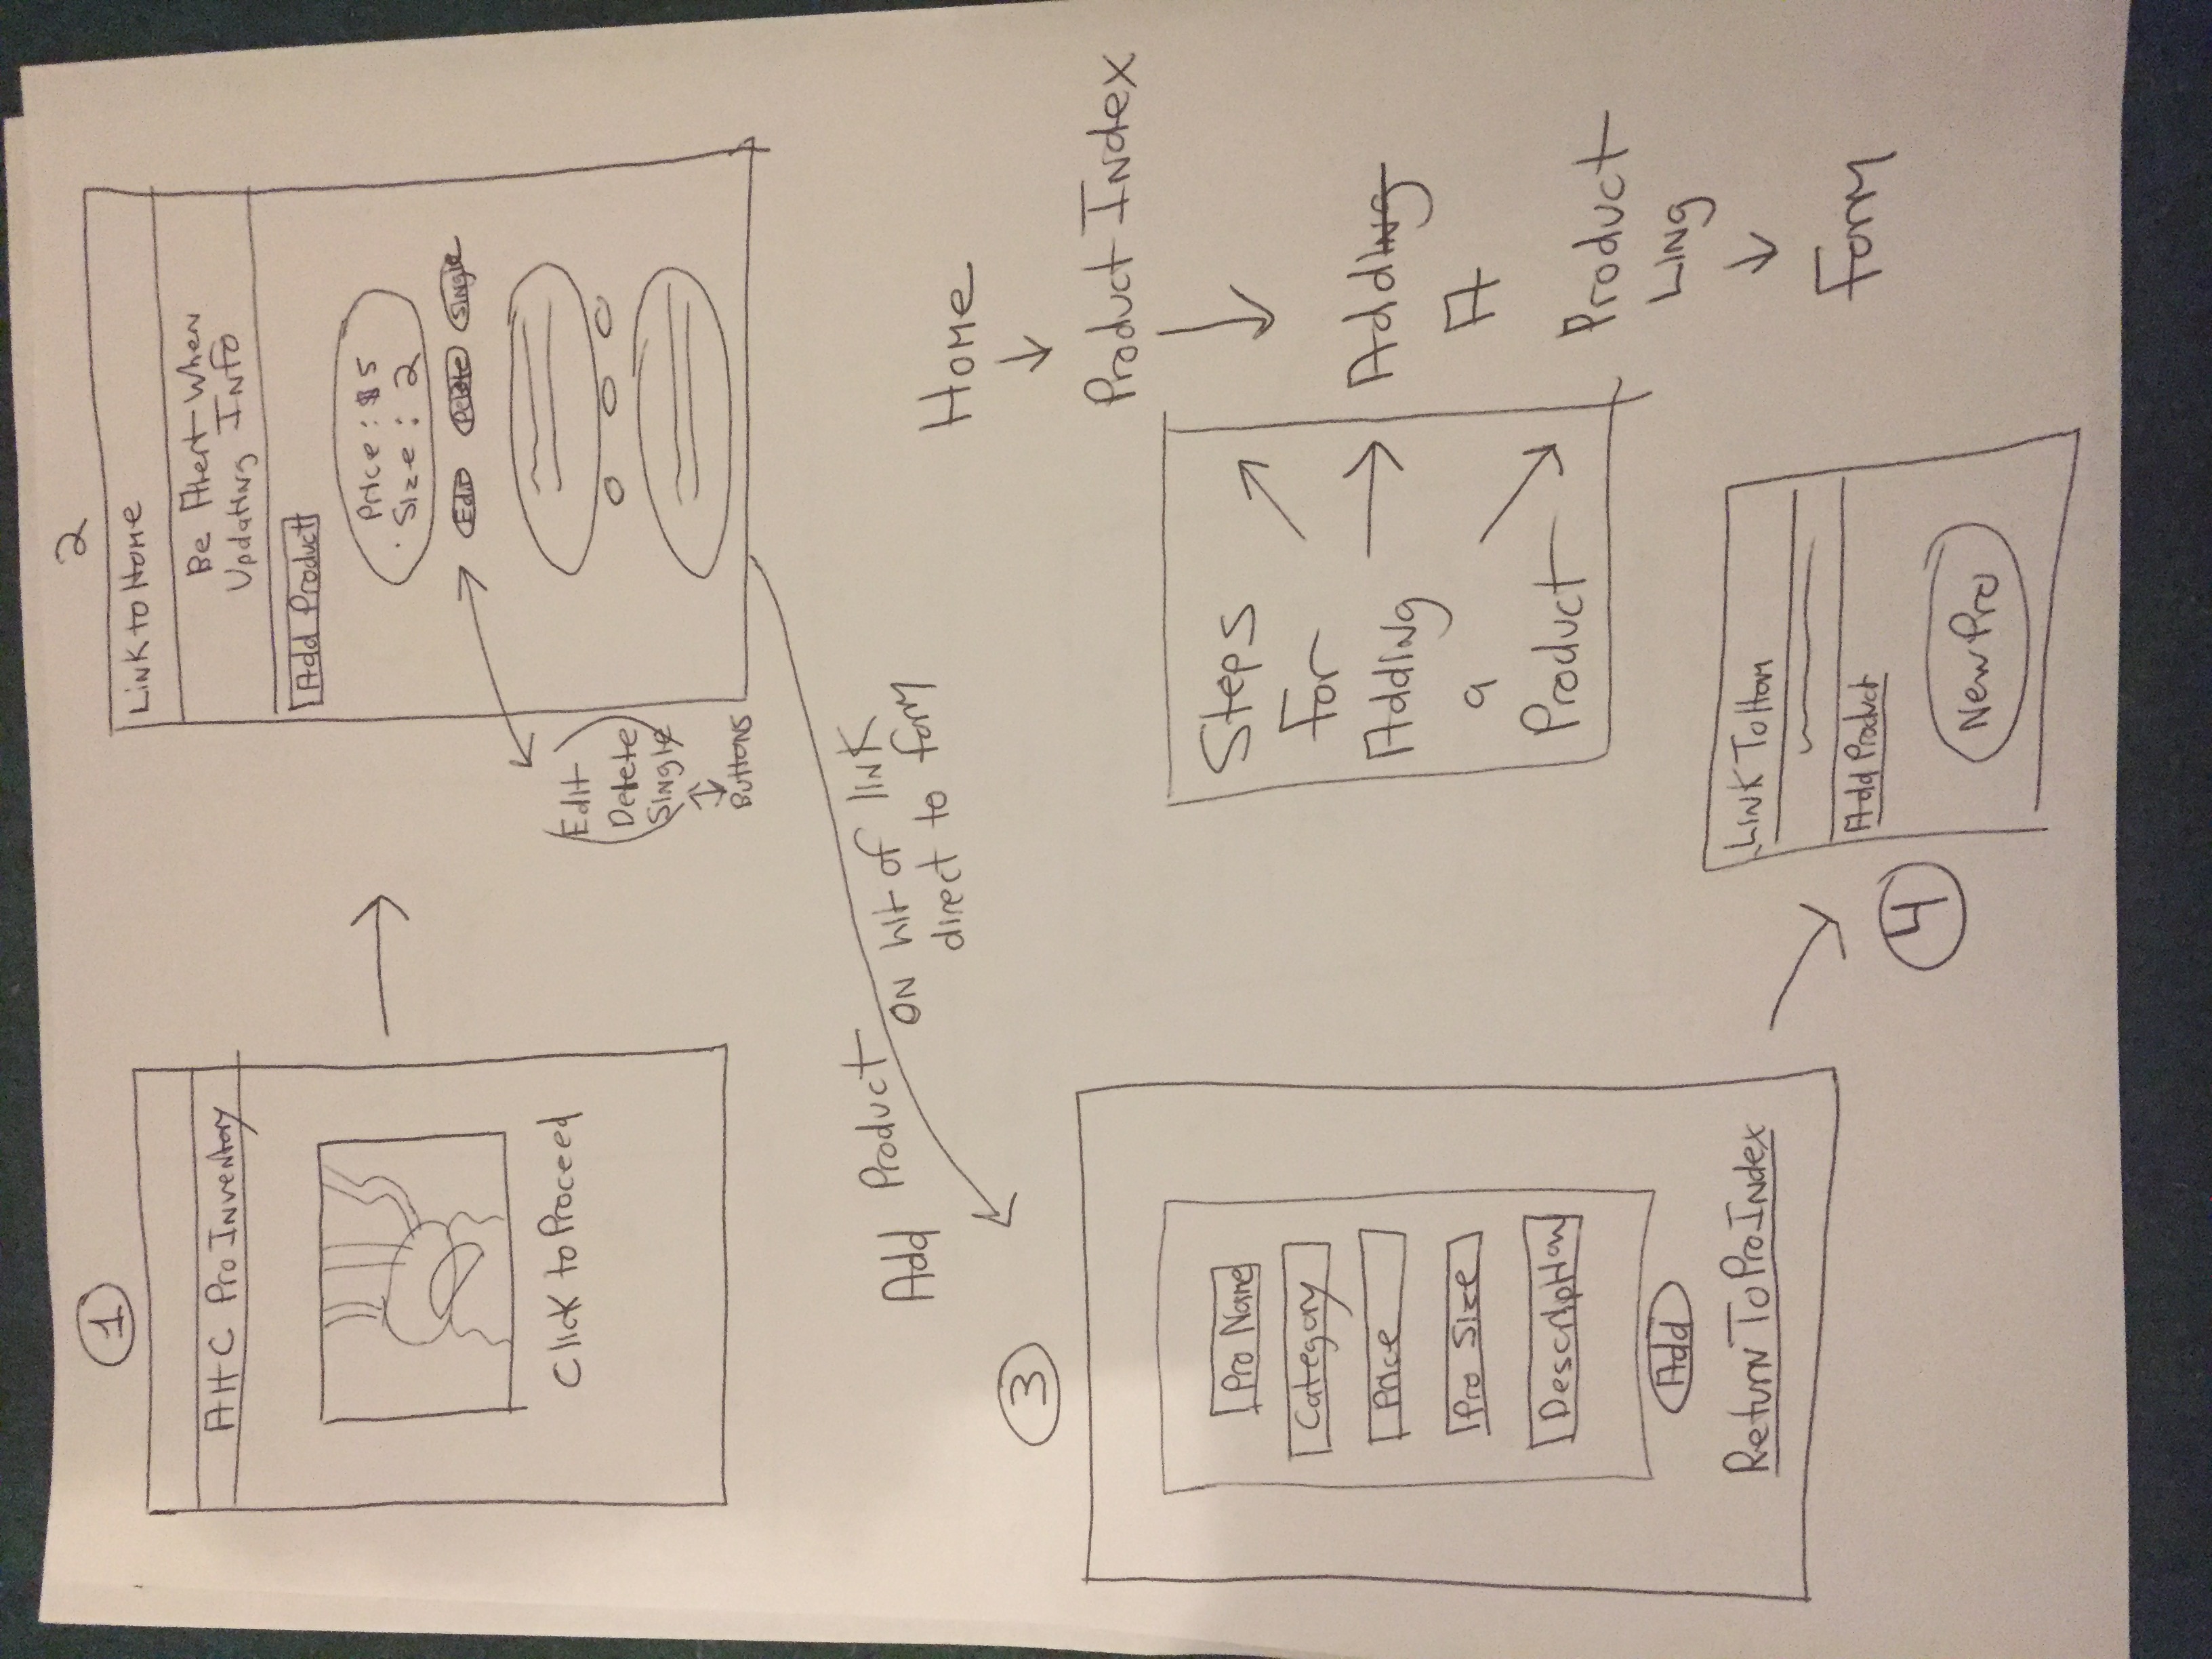 1
AHC Pro Inventory
Click to Proceed
2
Link to Home
Be Alert When
Updating Info
Add Product
Price: $5
. Size: 2
Edit Delete Single
Edit
Delete
Single
Buttons
Add Product
On hit of link
direct to form
3
Pro Name
Category
Price
Pro Size
Description
Add
Return To Pro Index
Steps
For
Adding
a
Product
Home
Product Index
Adding
A
Product
Ling
Form
4
Link To Hom
Add Product
New Pro